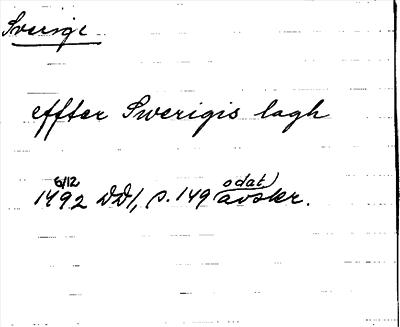 Sverige
effter Swerigis lagh
6/12 odat
1492 DD1, s. 149 avskr.